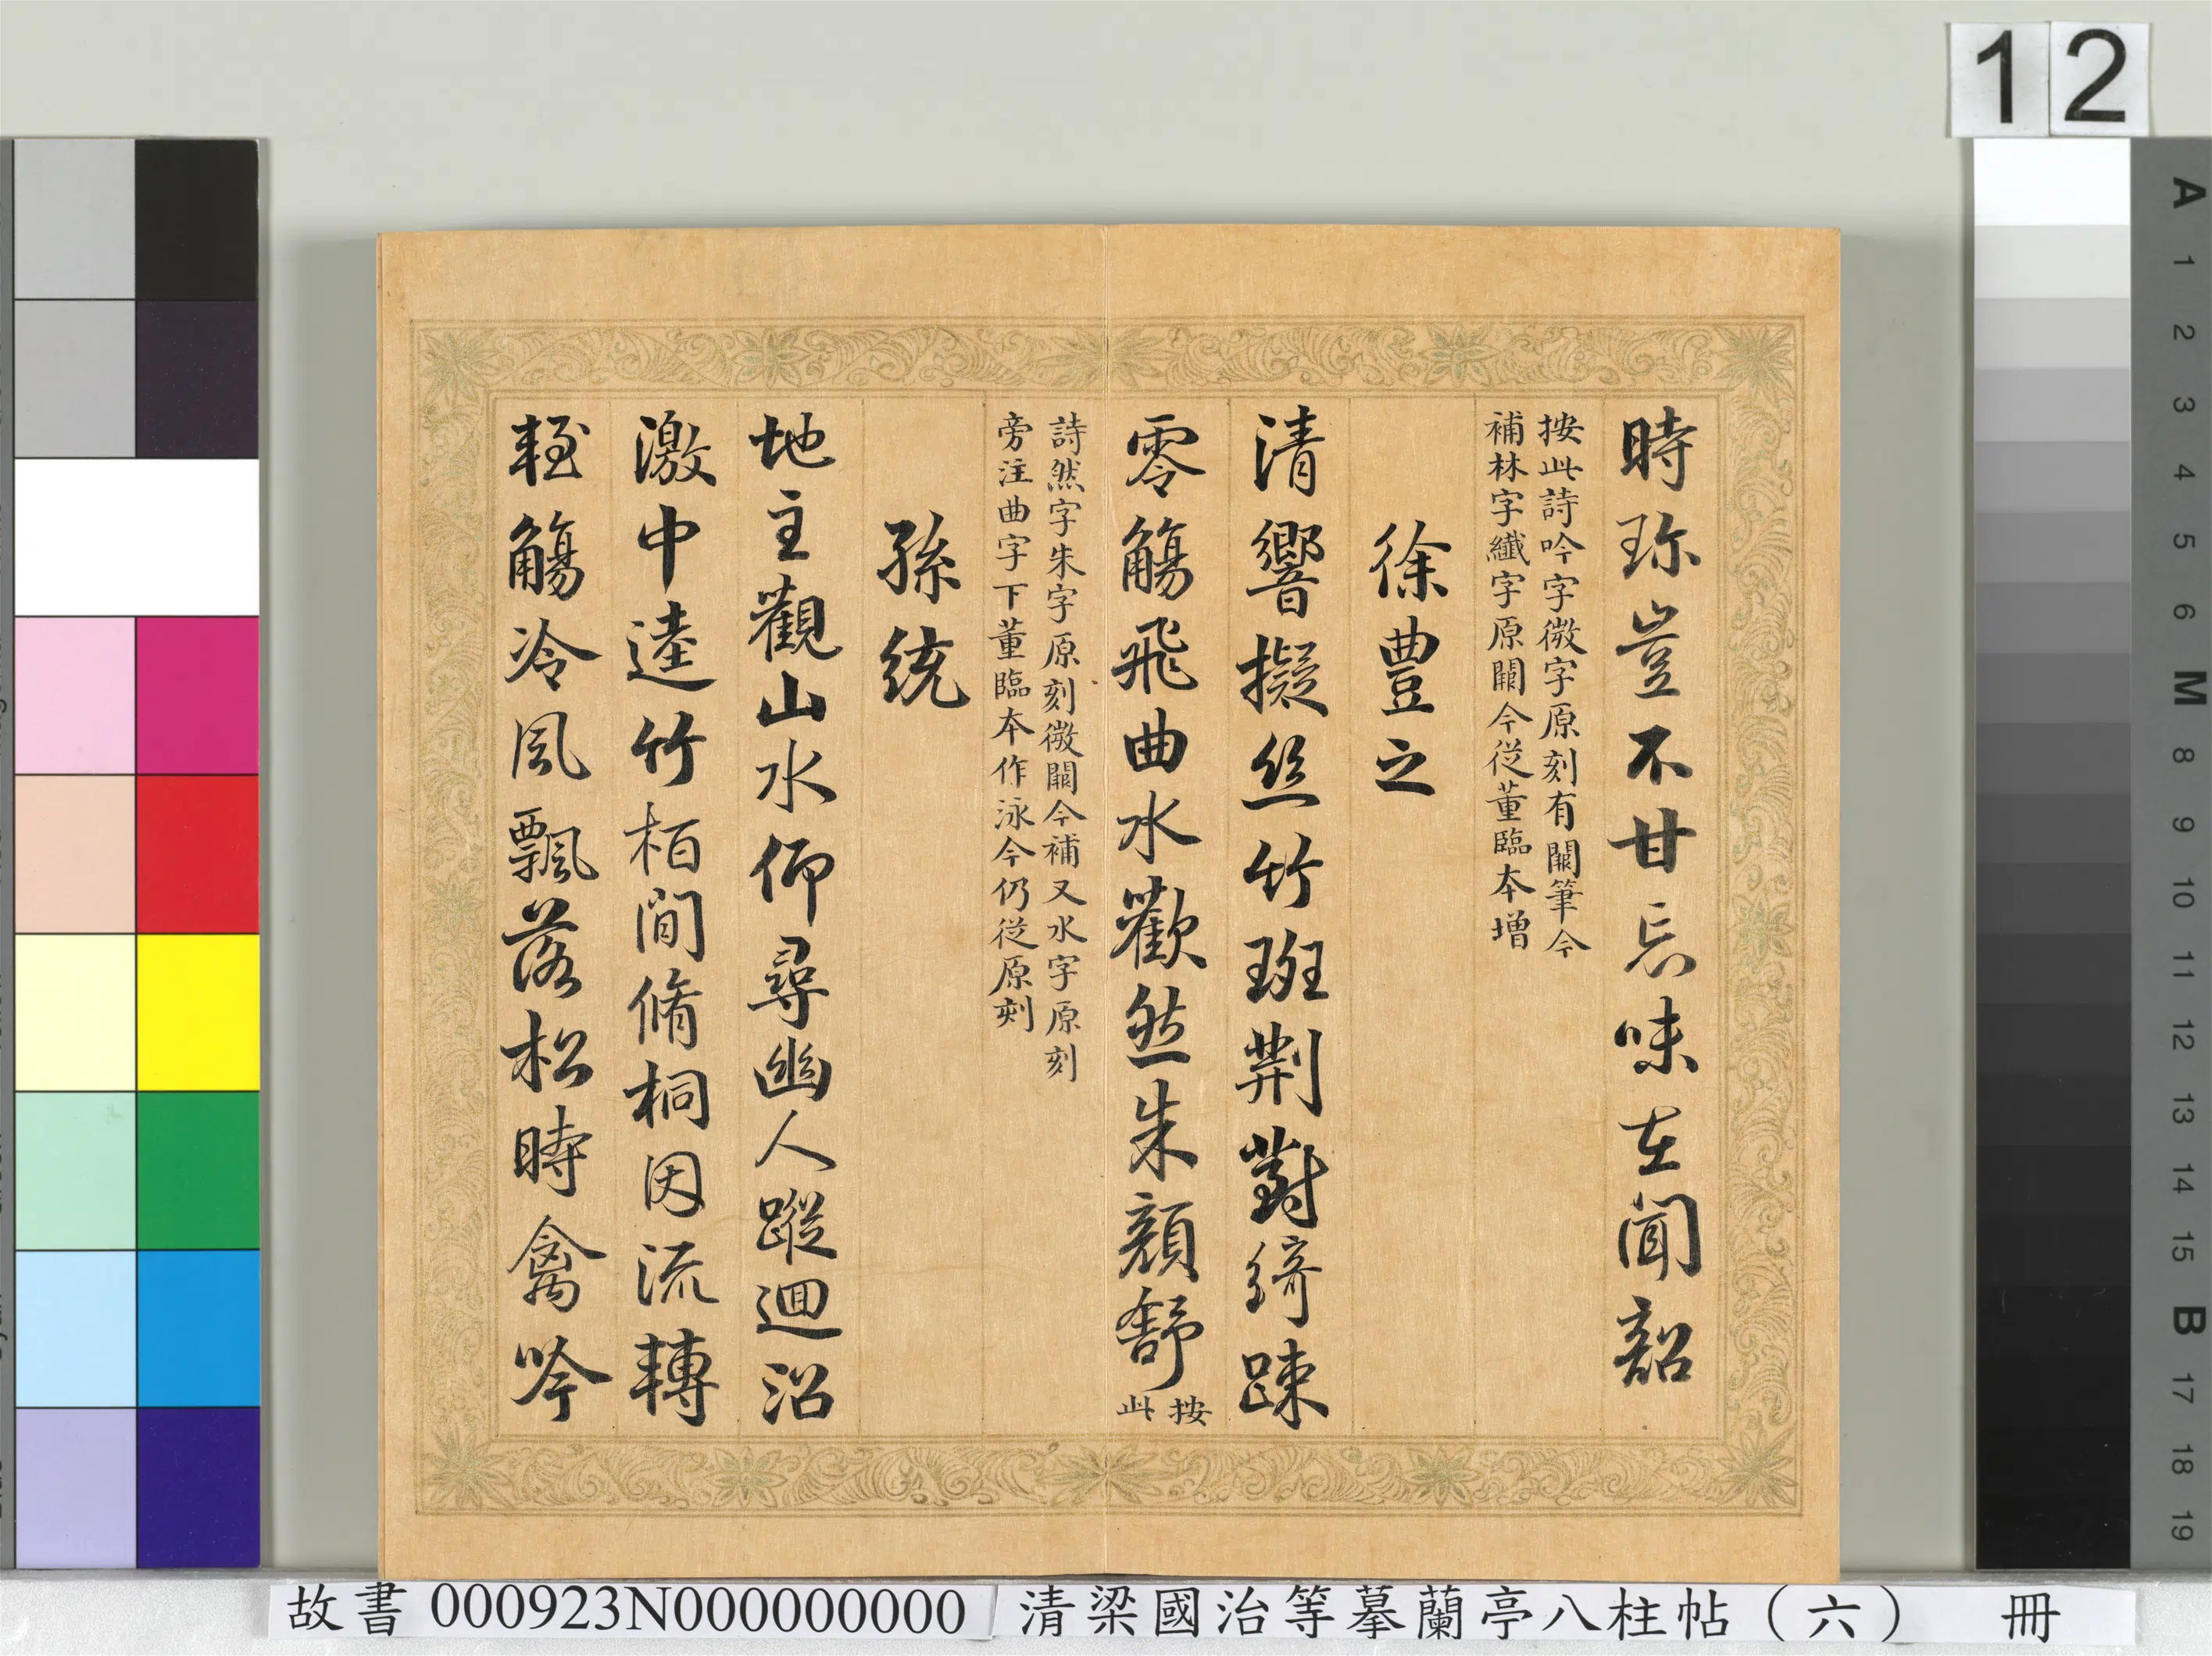 12
時珎豈不甘忘味在聞韶
按此詩吟字微字原刻有闕筆今
補林字纖字原闕今從董臨本增
徐豊之
清響擬絲竹班荆對綺踈
零觴飛曲水歡然朱顔舒按此
詩然字朱字原刻微闕今補又水字原刻
旁注曲字下董臨本作泳今仍從原刻
孫統
地主觀山水仰尋幽人蹤迴沼
激中逵竹栢間脩桐因流轉
輕觴冷風飄落松時禽吟
A 1 2 3 4 5 6 M 8 9 10 11 12 13 14 15 B 17 18 19
故書 000923N000000000 清梁國治等摹蘭亭八柱帖（六） 冊